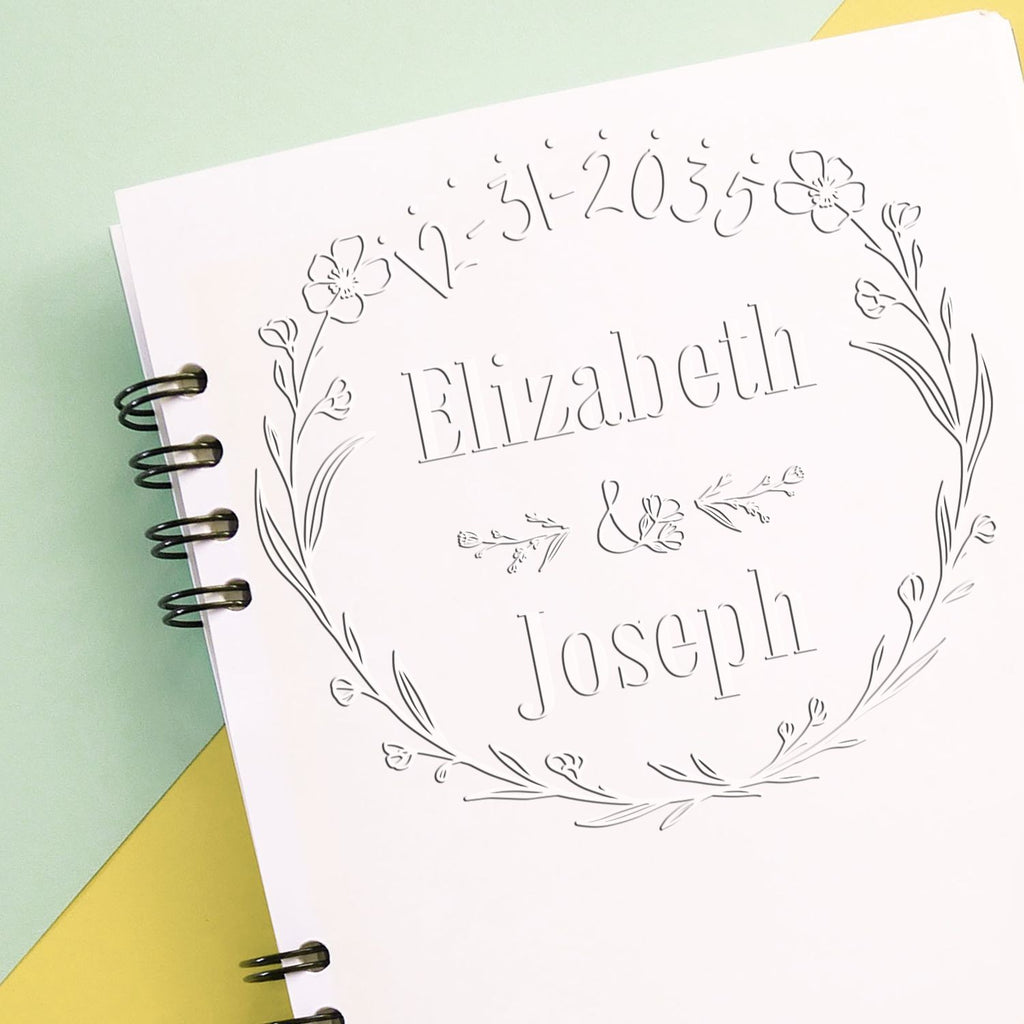 12-31-2035
Elizabeth
&
Joseph